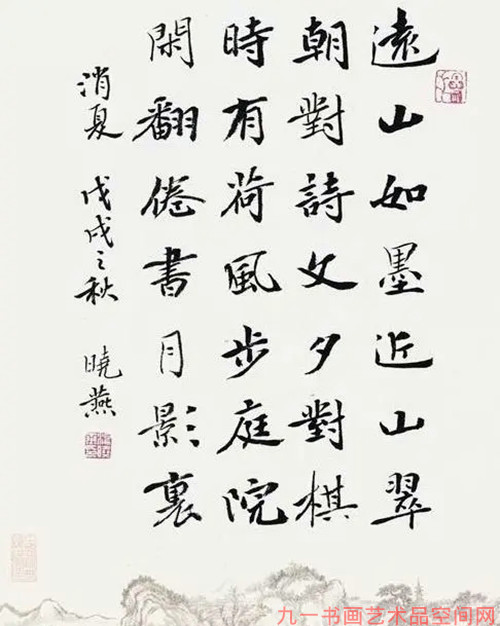 遠山如墨近山翠
朝對詩文夕對棋
時有荷風步庭院
閑翻倦書月影裏
消夏 戊戌之秋 曉燕
九一书画艺术品空间网